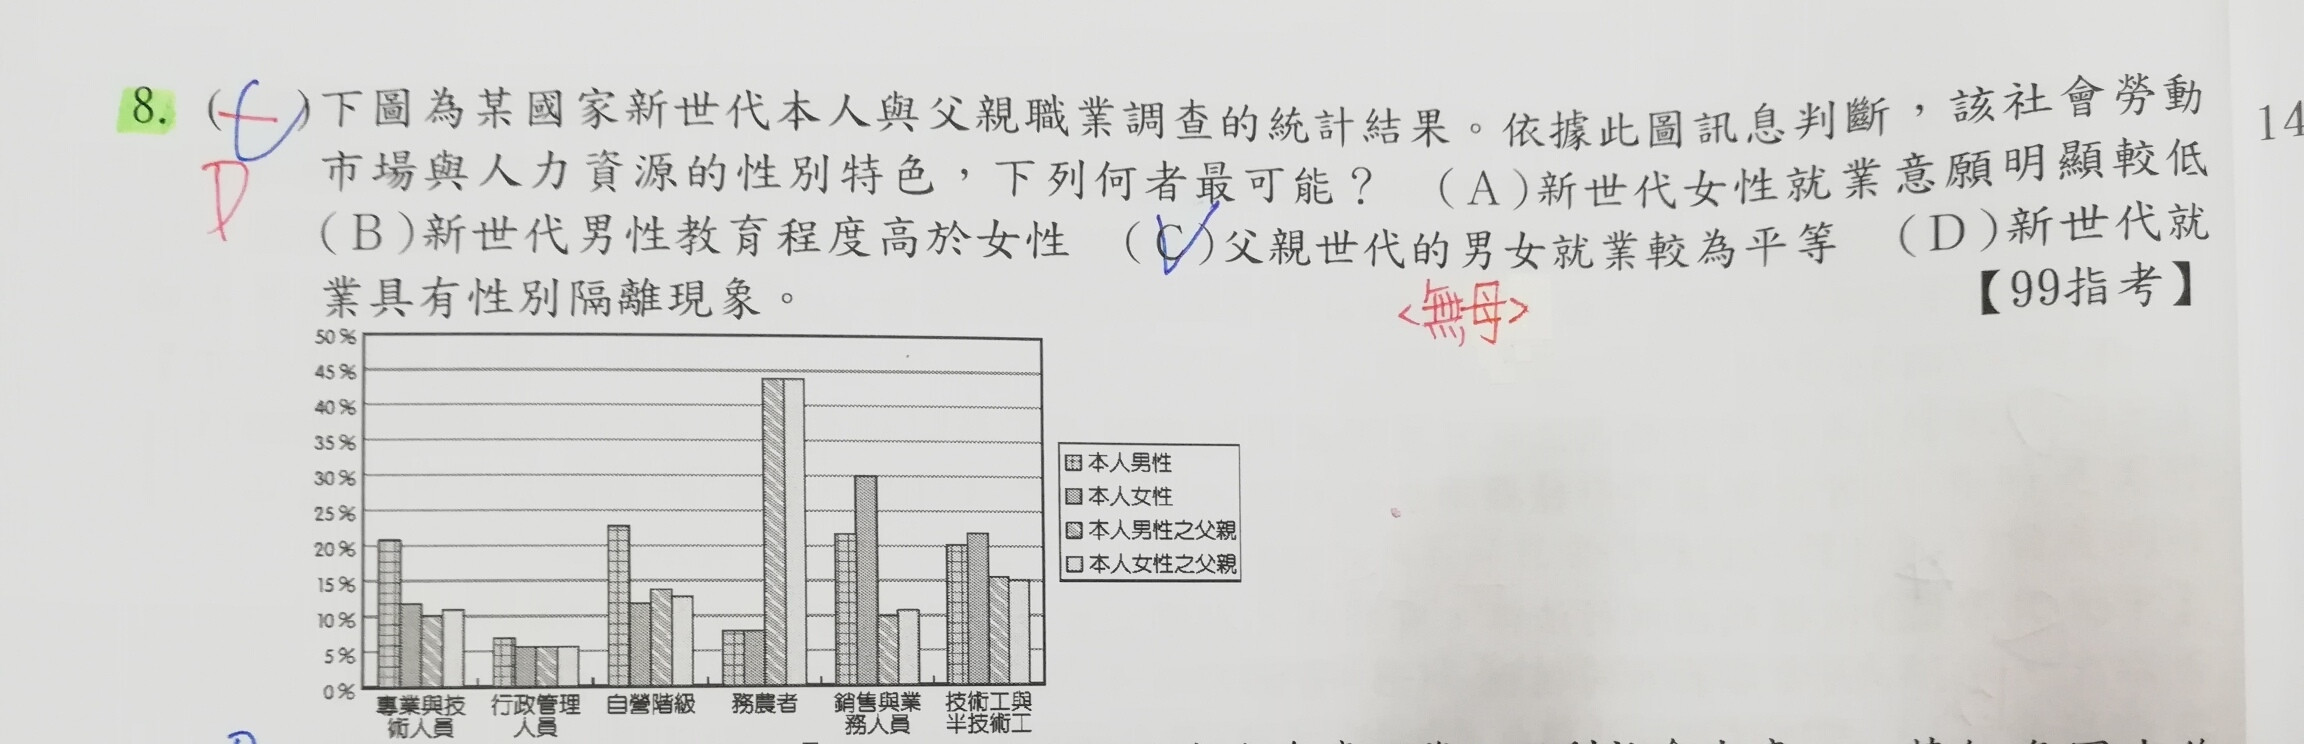 8. (C)下圖為某國家新世代本人與父親職業調查的統計結果。依據此圖訊息判斷，該社會勞動
14
D
市場與人力資源的性別特色，下列何者最可能？ (A)新世代女性就業意願明顯較低
(B)新世代男性教育程度高於女性 (C)父親世代的男女就業較為平等 (D)新世代就
業具有性別隔離現象。 【99指考】
<無母>
50%
45%
40%
35%
30%
25%
20%
15%
10%
5%
0%
本人男性
本人女性
本人男性之父親
本人女性之父親
專業與技術人員
行政管理人員
自營階級
務農者
銷售與業務人員
技術工與半技術工